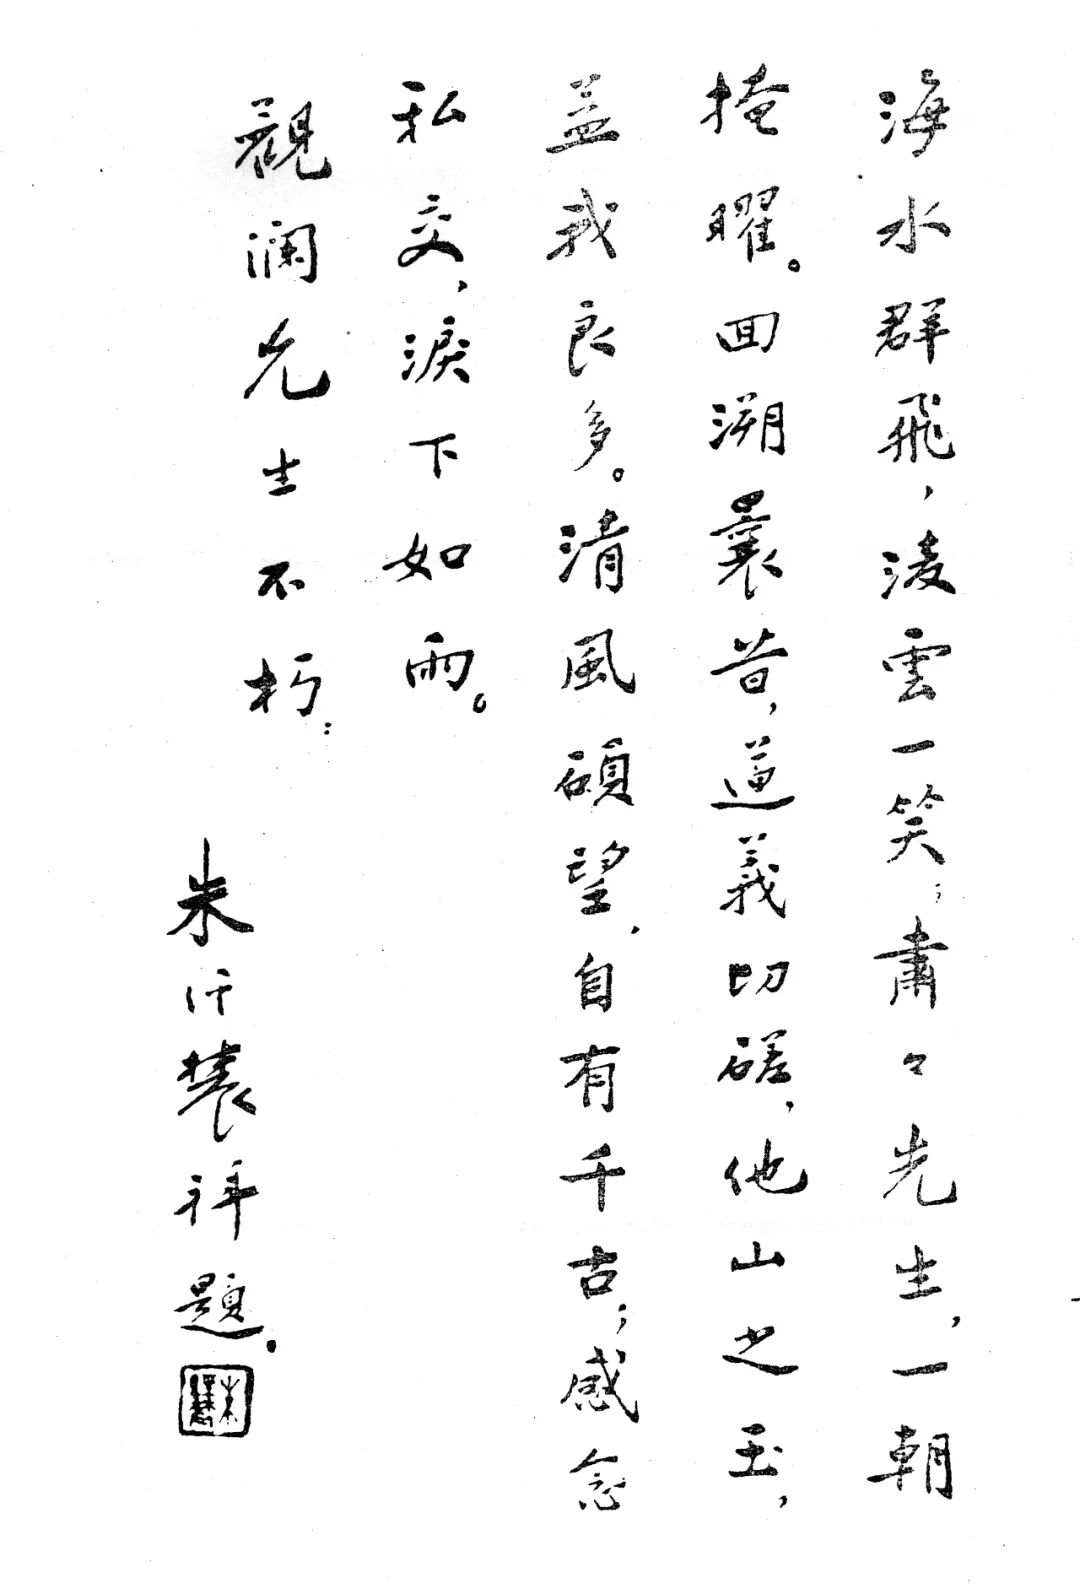 海水群飛，淩雲一笑；肅々先生，一朝
掩曜。回溯曩昔，道義切磋，他山之玉，
益我良多。清風碩望，自有千古；感念
私交，淚下如雨。
觀瀾先生不朽：
朱祥題.